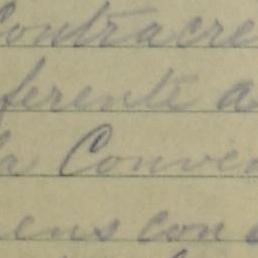 Contracre
ferente a
la Conven
ens con